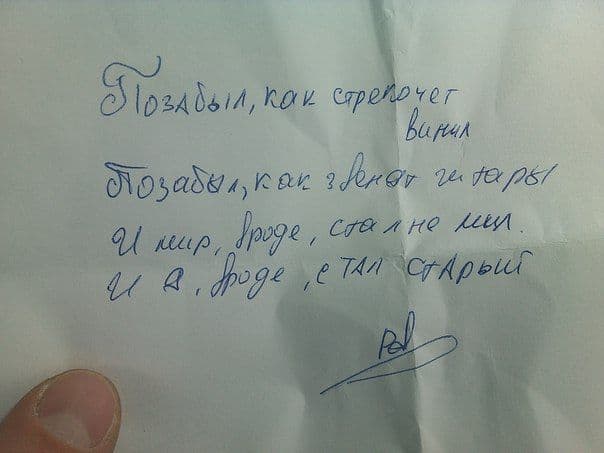 Позабыл, как стрекочет
винил
Позабыл, как звенят гитары
И мир, вроде, стал не мил.
И я, вроде, стал старый